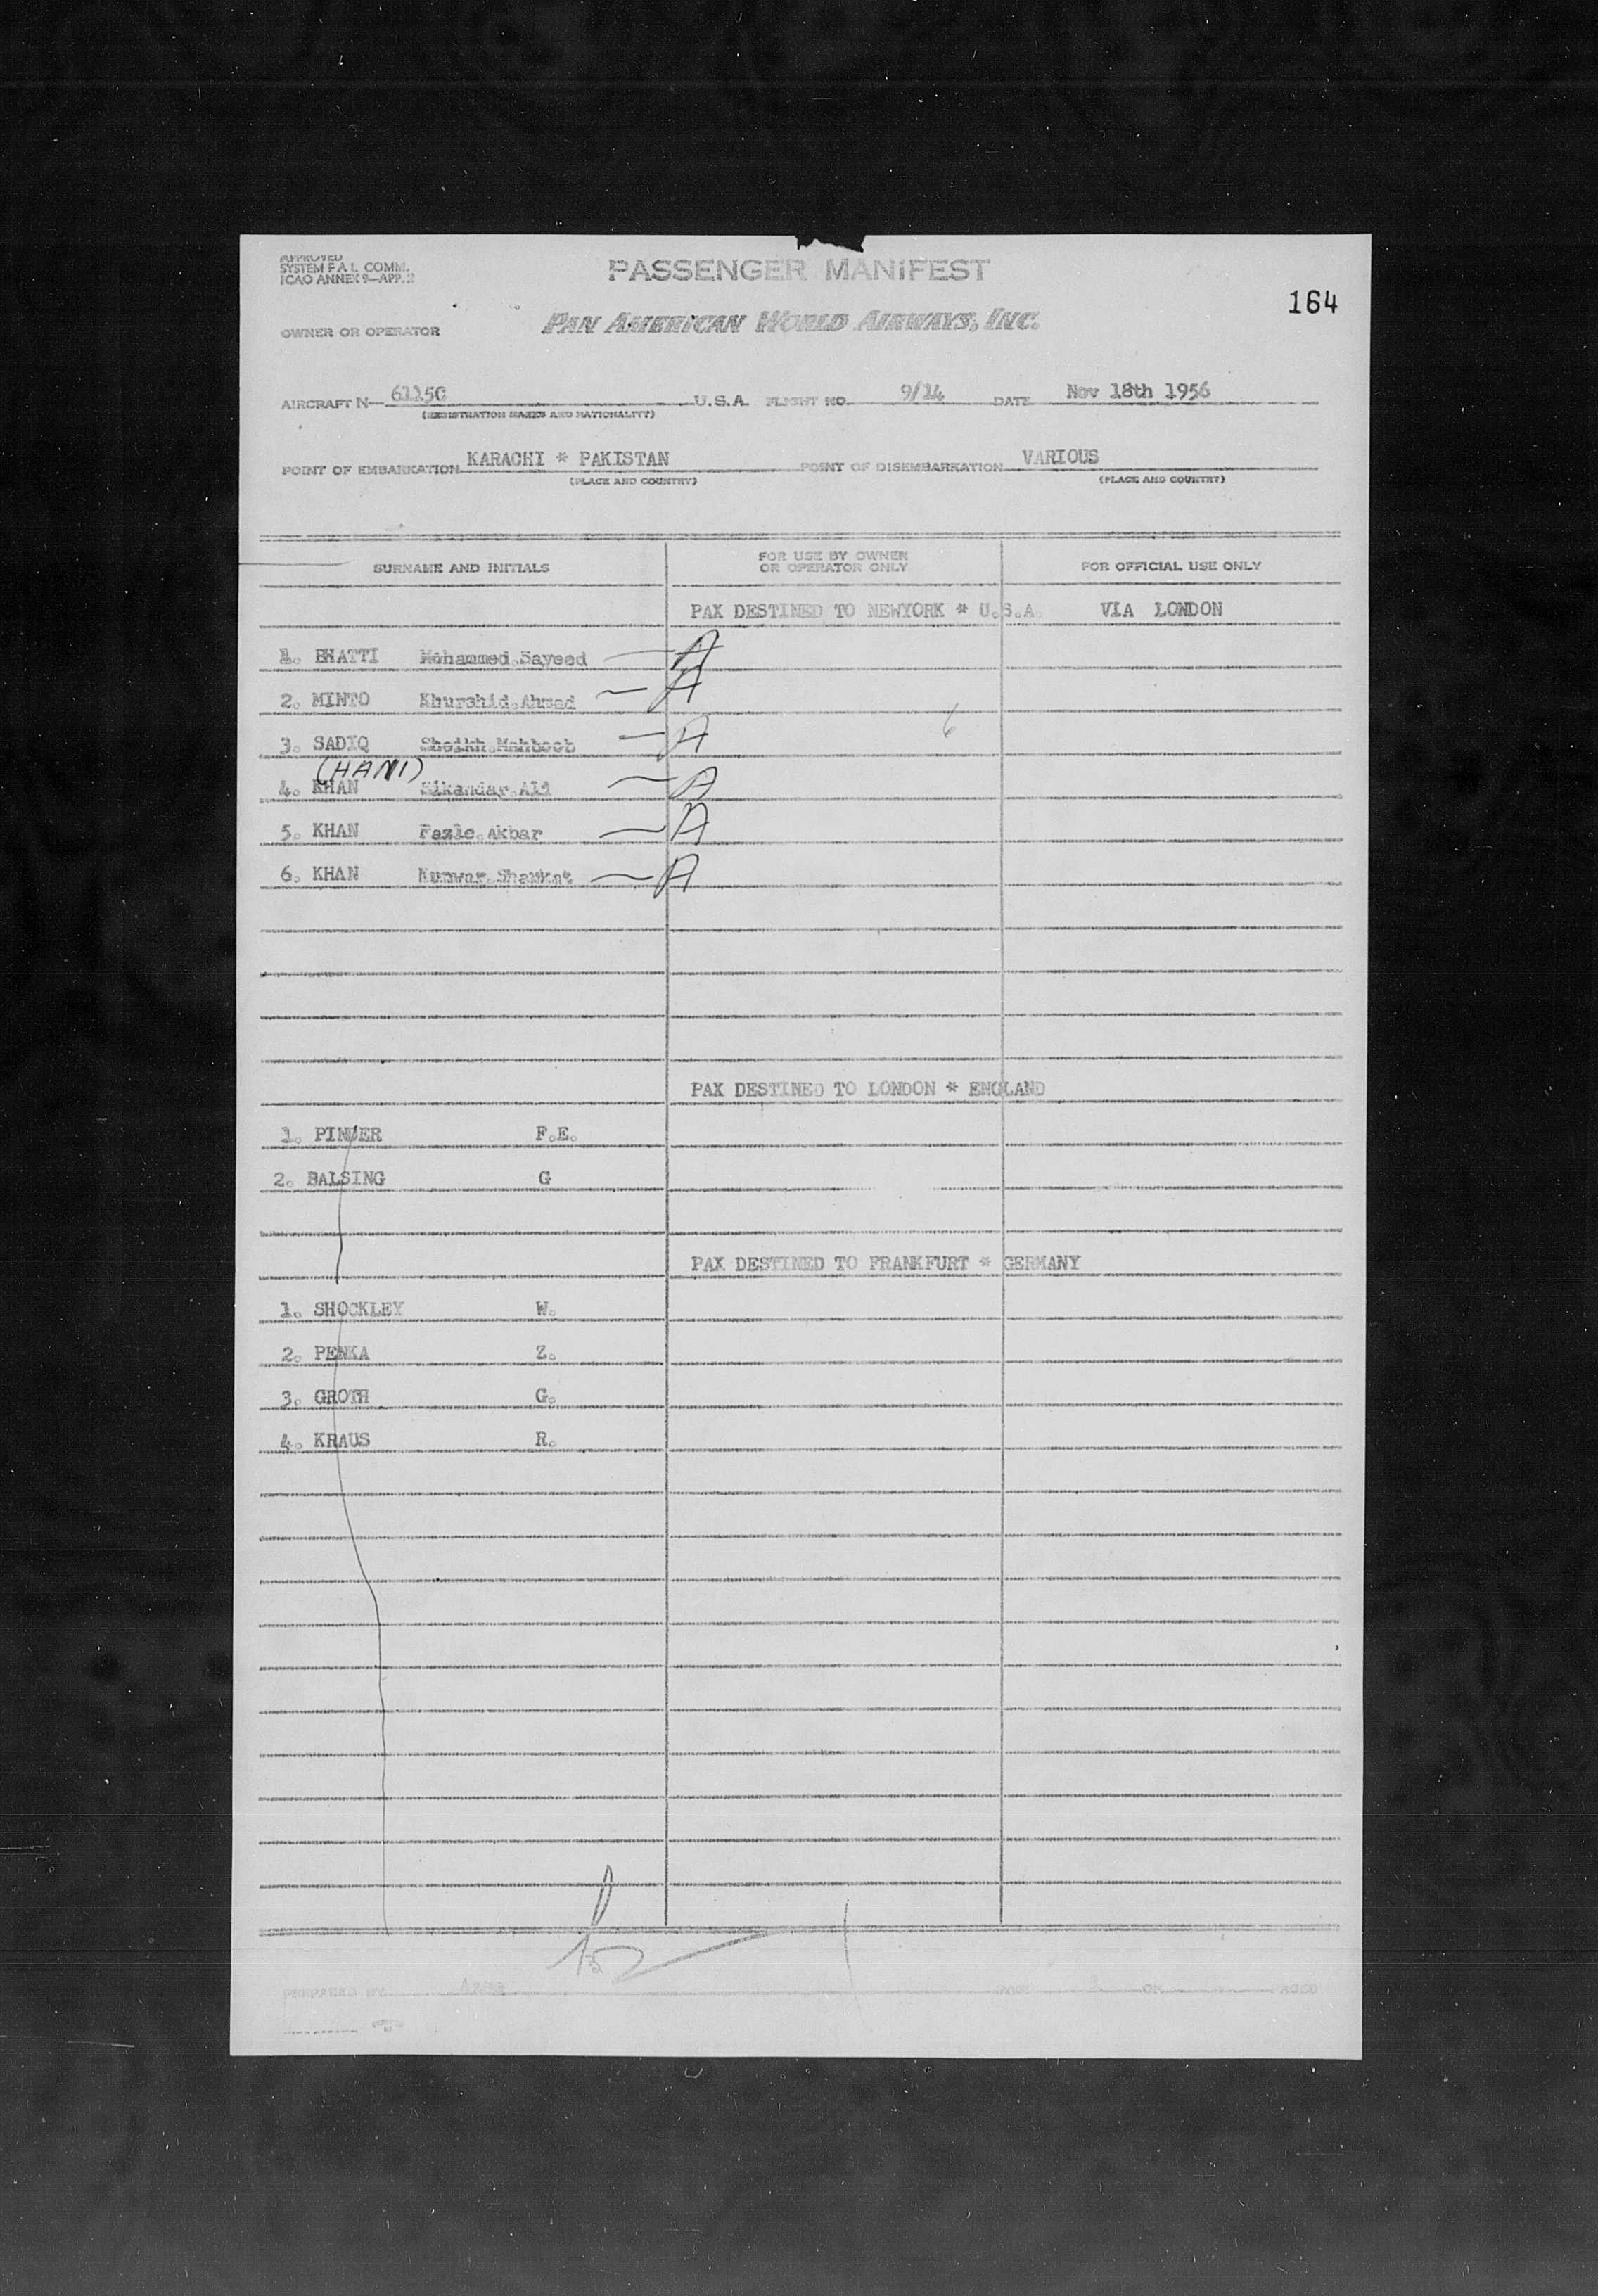 APPROVED
SYSTEM F A L COMM.
ICAO ANNEX 9—APP. 2
PASSENGER MANIFEST
164
OWNER OR OPERATOR
PAN AMERICAN WORLD AIRWAYS, INC.
AIRCRAFT N— 6115C U.S.A. FLIGHT NO. 9/14 DATE Nov 18th 1956
(REGISTRATION MARKS AND NATIONALITY)
POINT OF EMBARKATION KARACHI * PAKISTAN POINT OF DISEMBARKATION VARIOUS
(PLACE AND COUNTRY) (PLACE AND COUNTRY)
SURNAME AND INITIALS FOR USE BY OWNER OR OPERATOR ONLY FOR OFFICIAL USE ONLY
PAX DESTINED TO NEWYORK * U.S.A. VIA LONDON
1. BHATTI Mohammed.Sayeed — A
2. MINTO Khurshid.Ahmad — A
3. SADIQ Sheikh.Mahboob — A
6
(HANI)
4. KHAN Sikandar.Ali — A
5. KHAN Fazle.Akbar — A
6. KHAN Kunwar.Shaukat — A
PAX DESTINED TO LONDON * ENGLAND
1. PINDER F.E.
2. BALSING G
PAX DESTINED TO FRANKFURT * GERMANY
1. SHOCKLEY W.
2. PENKA Z.
3. GROTH G.
4. KRAUS R.
PREPARED BY PAGE OF PAGES